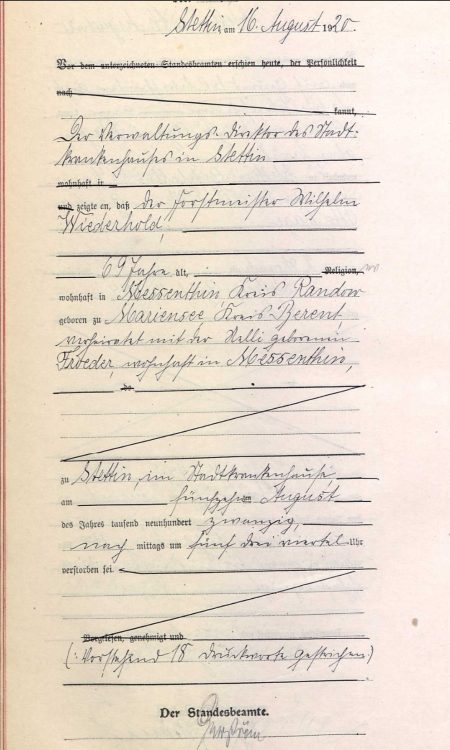 Stettin am 16. August 1920.
Vor dem unterzeichneten Standesbeamten erschien heute, der Persönlichkeit
nach
kannt,
Der Verwaltungs-Direktor des Stadt-
krankenhauses in Stettin
wohnhaft in
und zeigte an, daß der Forstmeister Wilhelm
Wiederhold,
69 Jahre alt, Religion,
wohnhaft in Messenthin, Kreis Randow
geboren zu Mariensee, Kreis Berent
verheiratet mit der Nelli geborenen
Froeder, wohnhaft in Messenthin,
zu Stettin, im Stadtkrankenhause,
am fünfzehn August
des Jahres tausend neunhundert zwanzig,
nach mittags um fünf drei viertel Uhr
verstorben sei.
Vorgelesen, genehmigt und
(: Vorstehend 18 Druckworte gestrichen.)
Der Standesbeamte.